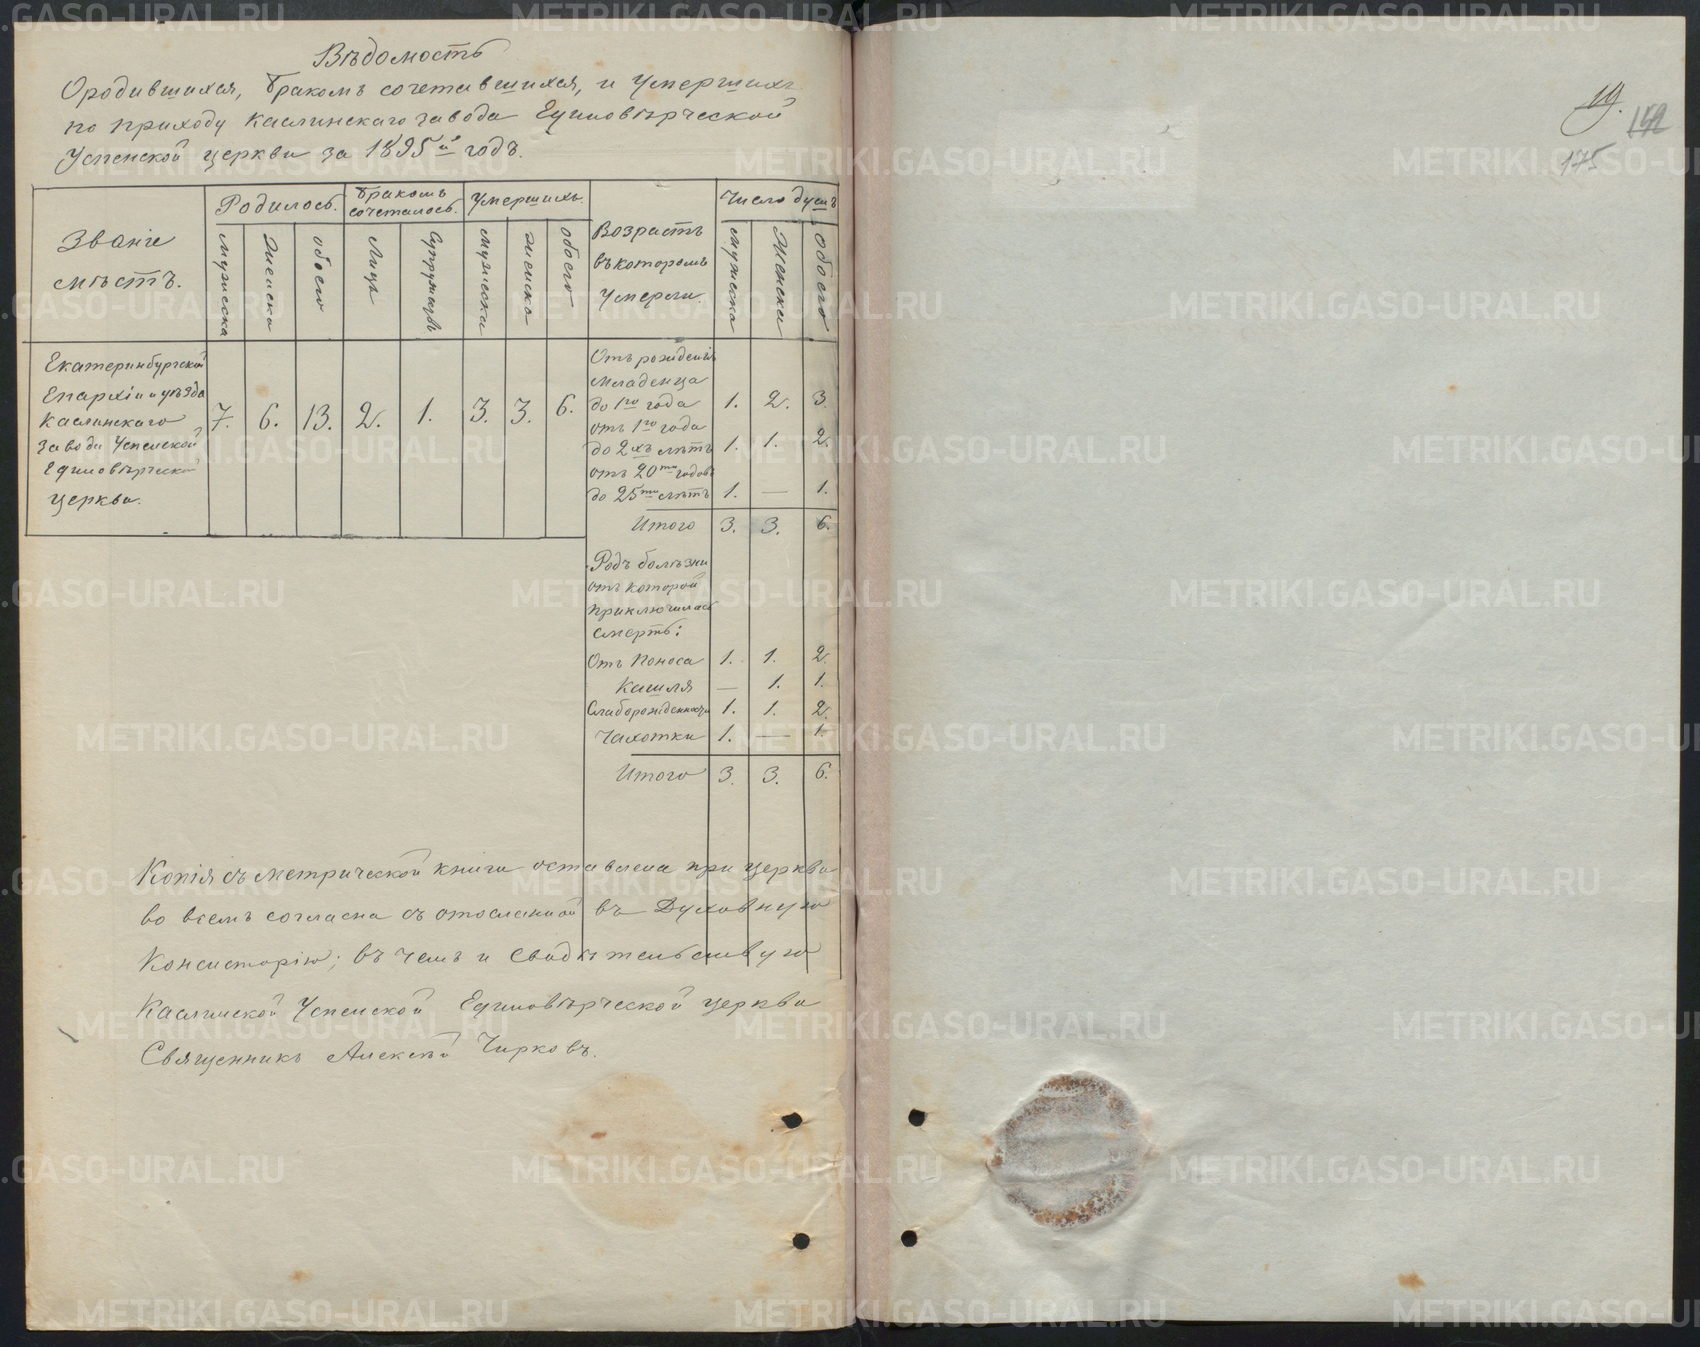 Вѣдомость
О родившихся, бракомъ сочетавшихся, и умершихъ
по приходу Каслинскаго завода Единовѣрческой
Успенской церкви за 1895й годъ.
Званіе мѣстъ.
Родилось.
Бракомъ сочеталось.
Умершихъ.
Возрастъ въ которомъ умерли.
Число душъ
Мужеска Женска обоего Лицъ Супружествъ Мужески женска обоего Мужеска Женска Обоего
Екатеринбургской
Епархіи и уѣзда
Каслинскаго
завода Успенской
Единовѣрческой
церкви.
7. 6. 13. 2. 1. 3. 3. 6.
Отъ рожденія
младенца
до 1го года 1. 2. 3.
отъ 1го года
до 2хъ лѣтъ 1. 1. 2.
отъ 20ти годовъ
до 25ти лѣтъ 1. — 1.
Итого 3. 3. 6.
Родъ болѣзни
отъ которой
приключилась
смерть:
Отъ поноса 1. 1. 2.
Кашля — 1. 1.
Слаборожденности 1. 1. 2.
Чахотки 1. — 1.
Итого 3. 3. 6.
Копія съ метрической книги оставлена при церкви
во всемъ согласна съ отосланной въ Духовную
Консисторію; въ чемъ и свидѣтельствую
Каслинской Успенской Единовѣрческой церкви
Священникъ Алексѣй Чирковъ.
19.
175
METRIKI.GASO-URAL.RU